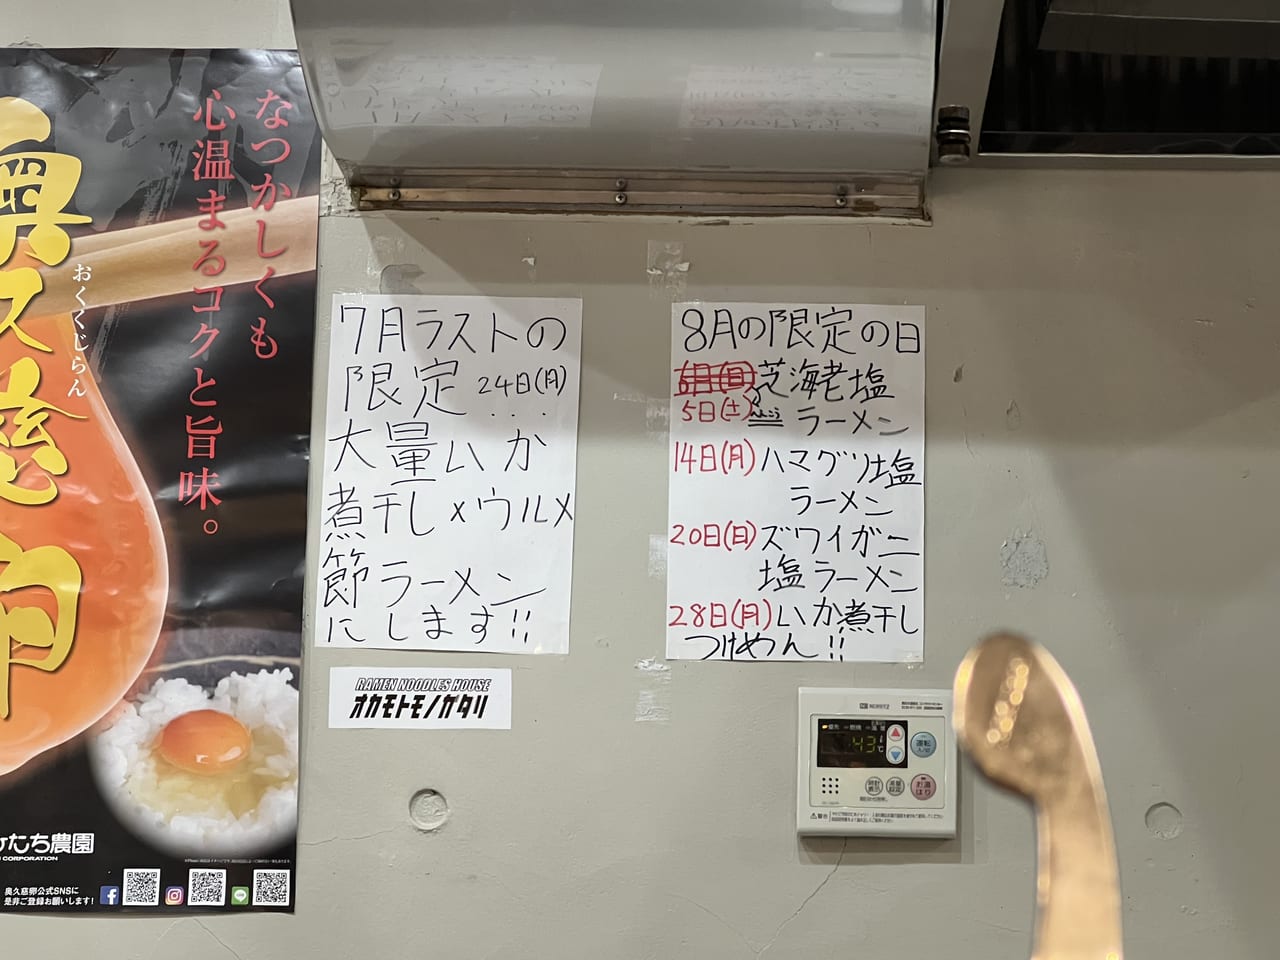 なつかしくも
心温まるコクと旨味。
奥久慈卵
おくくじらん
たち農園
CORPORATION
奥久慈卵公式SNSに
是非ご登録お願いします!
7月ラストの
限定 24日(月)
大量いか
煮干し×ウルメ
節ラーメン
にします!!
RAMEN NOODLES HOUSE
オカモトモノガタリ
8月の限定の日
芝海老塩
5日(土) へんこう ラーメン
14日(月) ハマグリ塩
ラーメン
20日(日) ズワイガニ
塩ラーメン
28日(月) いか煮干し
つけめん!!
NORITZ
優先 燃焼
43℃
運転
入/切